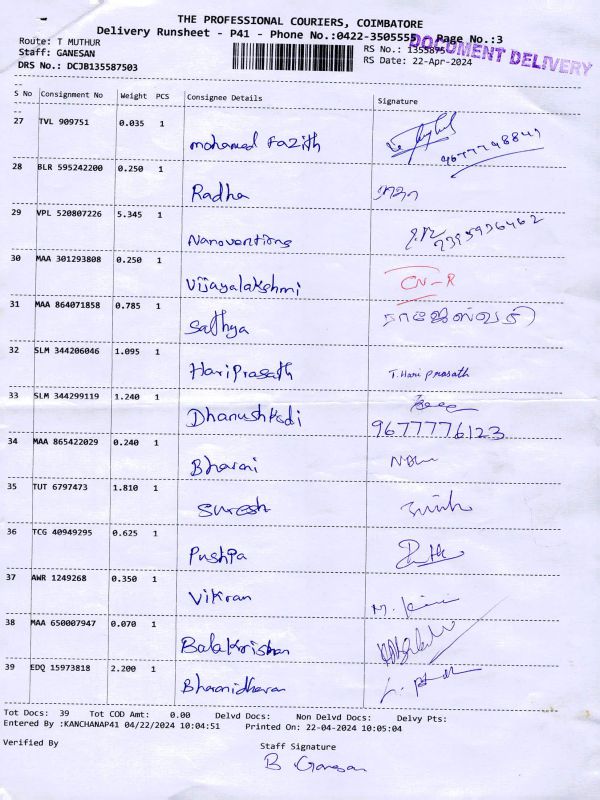 THE PROFESSIONAL COURIERS, COIMBATORE
Delivery Runsheet - P41 - Phone No.:0422-3505555 Page No.:3
DOCUMENT DELIVERY
Route: T MUTHUR
Staff: GANESAN
DRS No.: DCJB135587503
RS No.: 1355875
RS Date: 22-Apr-2024
S No Consignment No Weight PCS Consignee Details Signature
27 TVL 909751 0.035 1 mohamed Fazith
28 BLR 595242200 0.250 1 Radha
29 VPL 520807226 5.345 1 Nanoventions
30 MAA 301293808 0.250 1 Vijayalakshmi CN-R
31 MAA 864071858 0.785 1 Sathya ராஜேஸ்வரி
32 SLM 344206046 1.095 1 HariPrasath T.Hari prasath
33 SLM 344299119 1.240 1 Dhanushkodi 9677776123
34 MAA 865422029 0.240 1 Bharani
35 TUT 6797473 1.810 1 Suresh
36 TCG 40949295 0.625 1 Pushpa
37 AWR 1249268 0.350 1 Vikran
38 MAA 650007947 0.070 1 Balakrishan
39 EDQ 15973818 2.200 1 Bharanidharan
Tot Docs: 39 Tot COD Amt: 0.00 Delvd Docs: Non Delvd Docs: Delvy Pts:
Entered By :KANCHANAP41 04/22/2024 10:04:51 Printed On: 22-04-2024 10:05:04
Verified By
Staff Signature
B Ganesan